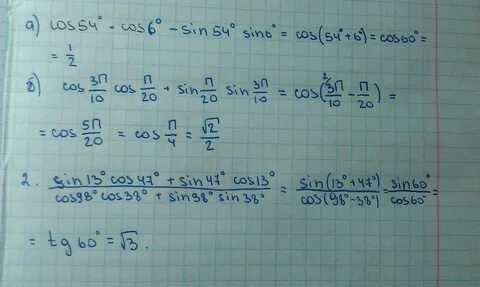 а) cos54° - cos6° - sin54° sin6° = cos(54°+6°) = cos60° =
= 1/2
б) cos 3π/10 cos π/20 + sin π/20 sin 3π/10 = cos(²⁾3π/10 - π/20) =
= cos 5π/20 = cos π/4 = √2/2
2. sin13° cos47° + sin47° cos13° / cos98° cos38° + sin98° sin38° = sin(13°+47°) / cos(98°-38°) = sin60° / cos60° =
= tg60° = √3.